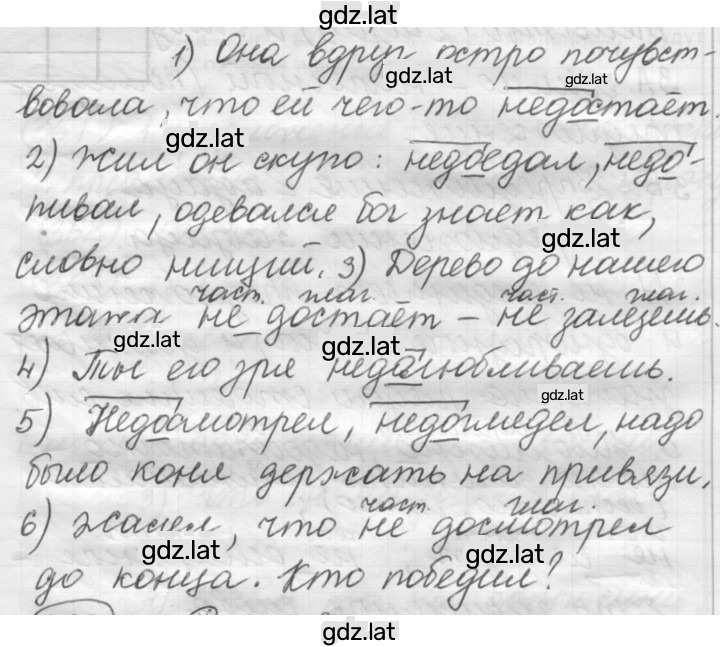 gdz.lat
1) Она вдруг остро почувст-
gdz.lat
gdz.lat
вовала, что ей чего-то недостаёт.
gdz.lat
2) Жил он скупо: недоедал, недо-
пивал, одевался бог знает как,
gdz.lat
словно нищий. 3) Дерево до нашего
част. глаг. част. глаг.
этажа не достаёт – не залезешь
gdz.lat
gdz.lat
4) Ты его зря недолюбливаешь.
gdz.lat
5) Недосмотрел, недоглядел, надо
было коня держать на привязи.
част. глаг.
6) Жалел, что не досмотрел
gdz.lat
gdz.lat
до конца. Кто победил?
gdz.lat